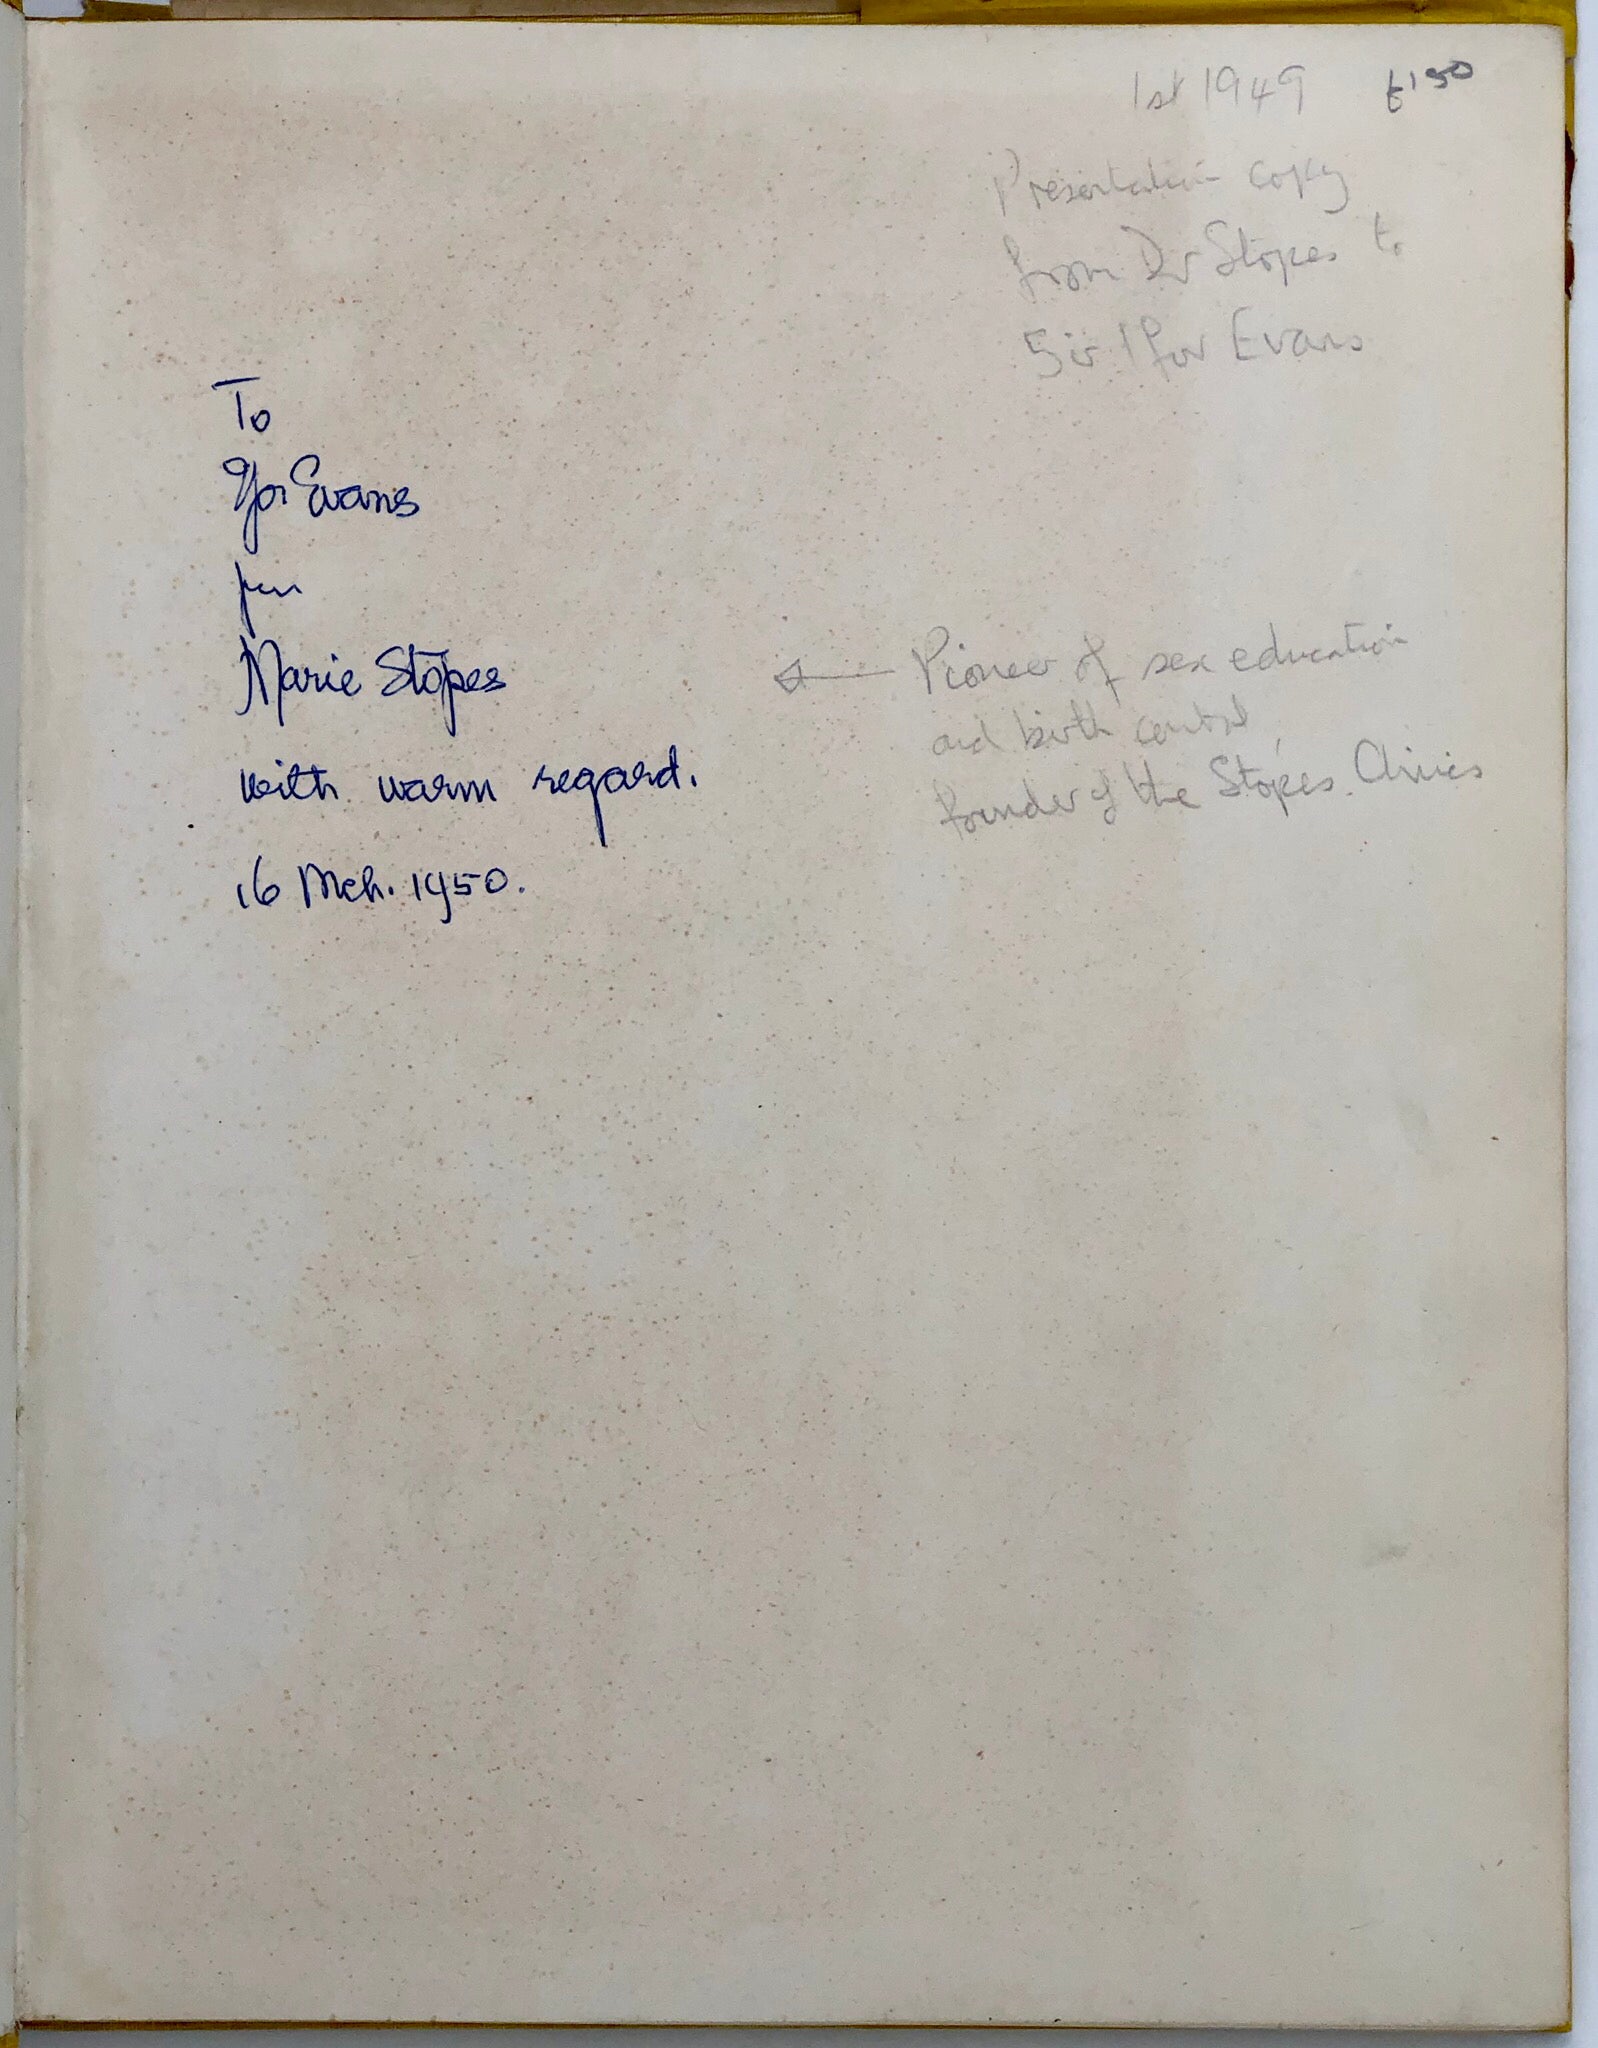 1st 1949 £150
Presentation copy
from Dr Stopes to
Sir Ifor Evans
To
Ifor Evans
from
Marie Stopes
with warm regard.
16 Mch. 1950.
Pioneer of sex education
and birth control,
founder of the Stopes Clinics